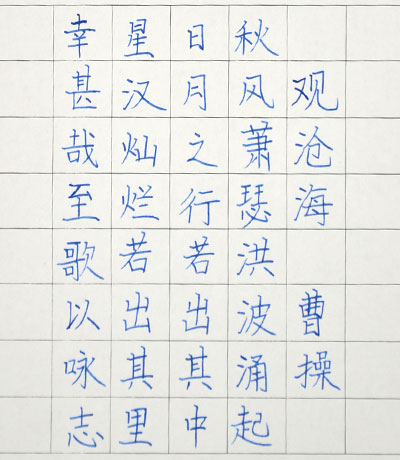 观沧海 曹操
秋风萧瑟洪波涌起
日月之行若出其中
星汉灿烂若出其里
幸甚哉至歌以咏志